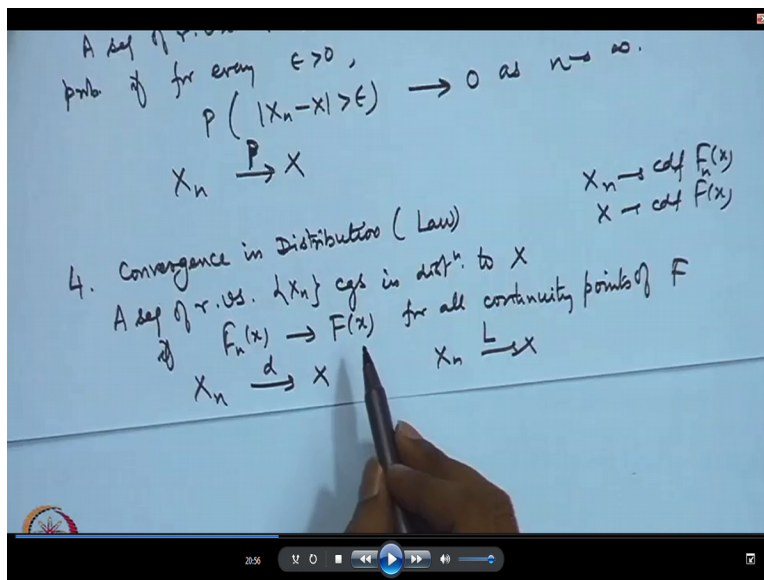 A seq of r. vs.
prob. if for every ϵ>0,
P( |Xn−X| >ϵ) → 0 as n→ ∞.
Xn →P X
Xn → cdf Fn(x)
X → cdf F(x)
4. Convergence in Distribution ( Law)
A seq of r. vs. {Xn} cgs in distn. to X
if Fn(x) → F(x) for all continuity points of F
Xn →d X Xn →L X
20:56